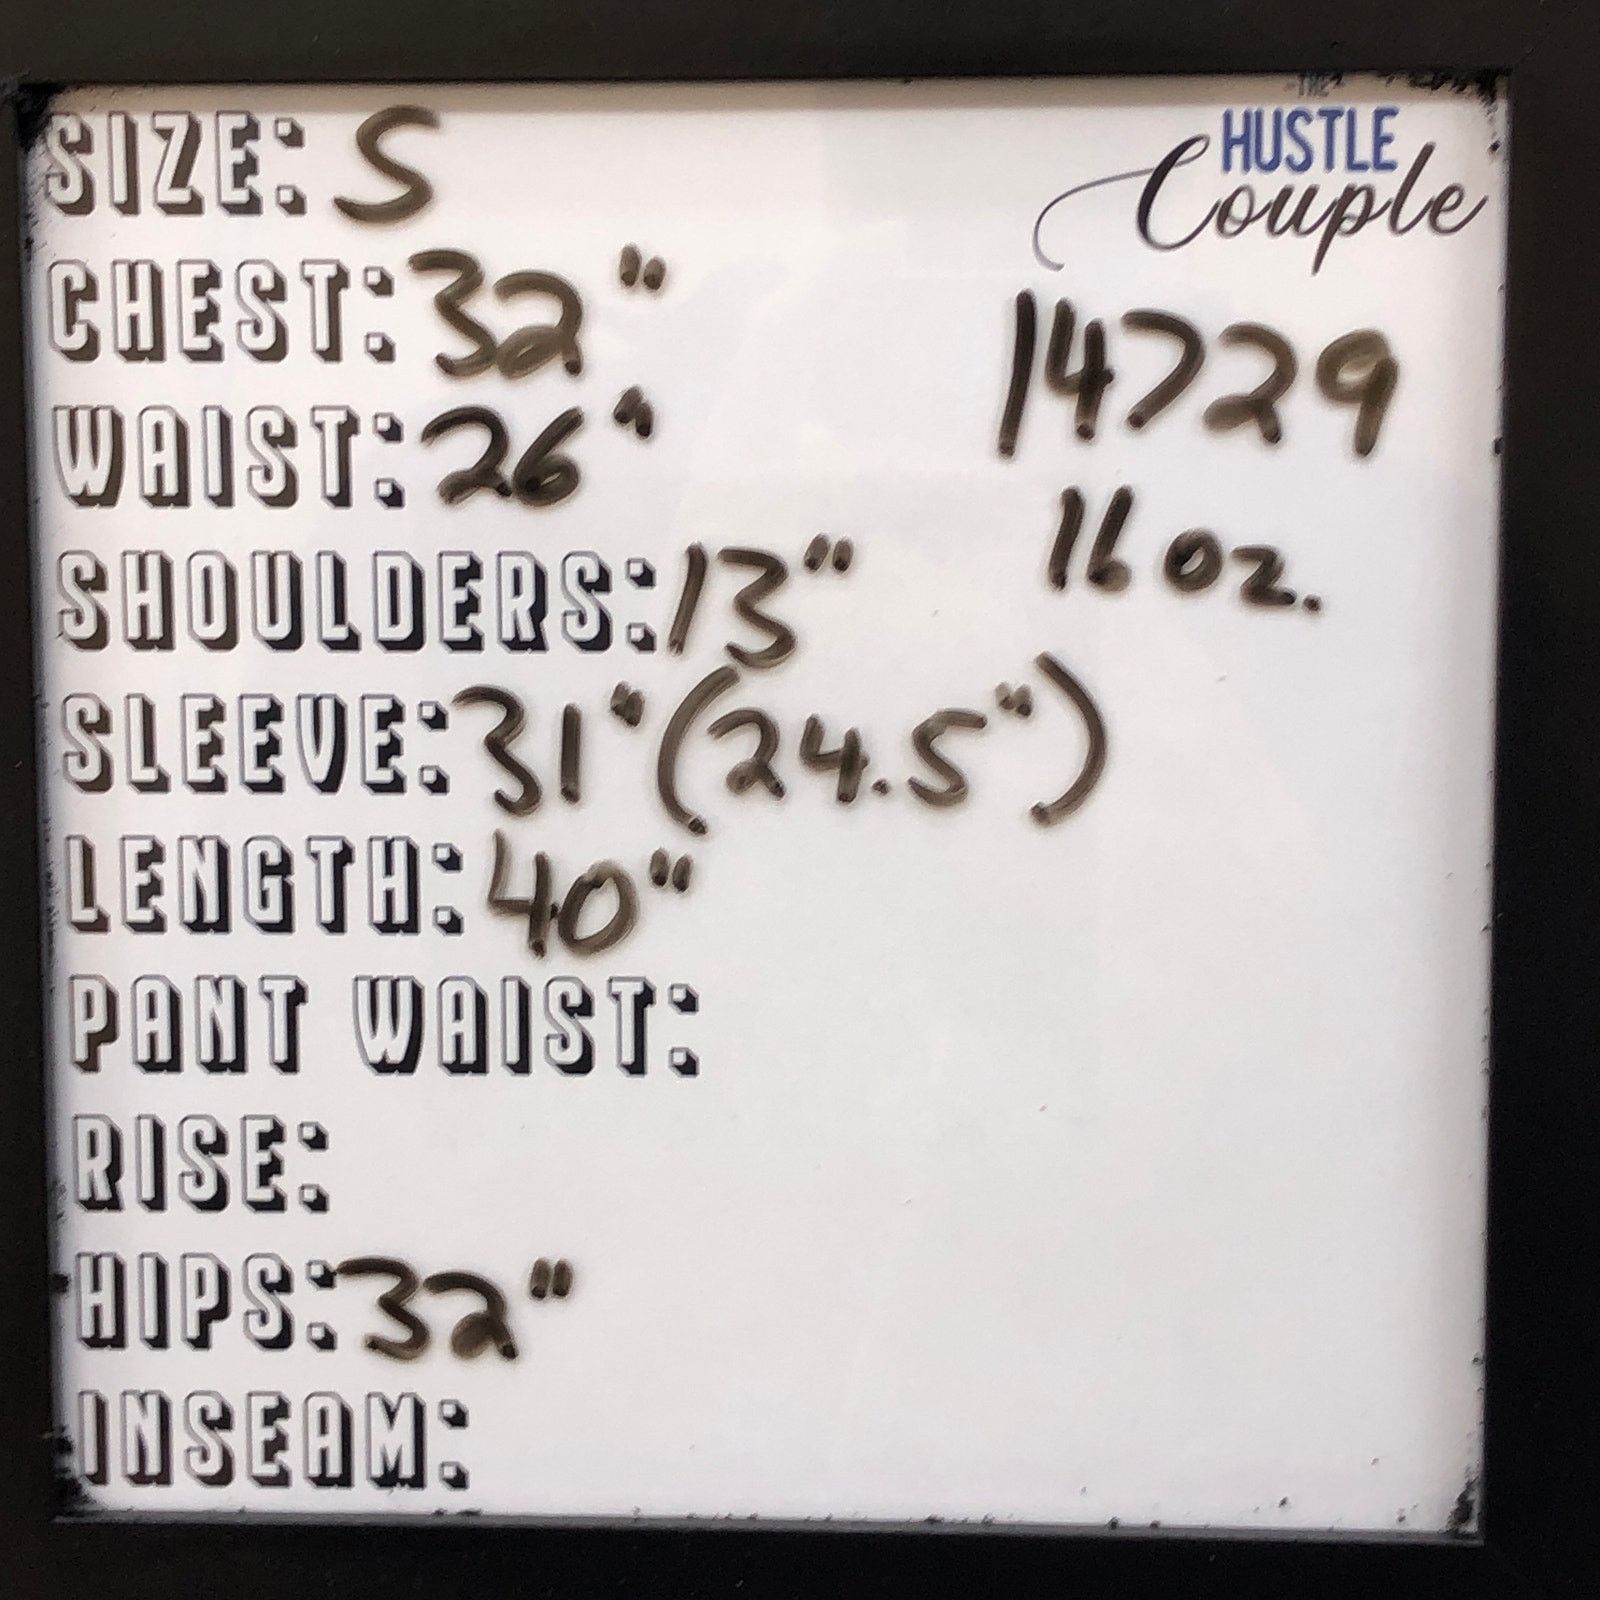 SIZE: S
THE
HUSTLE
Couple
CHEST: 32"
14729
WAIST: 26"
16 oz.
SHOULDERS: 13"
SLEEVE: 31" (24.5")
LENGTH: 40"
PANT WAIST:
RISE:
HIPS: 32"
INSEAM: